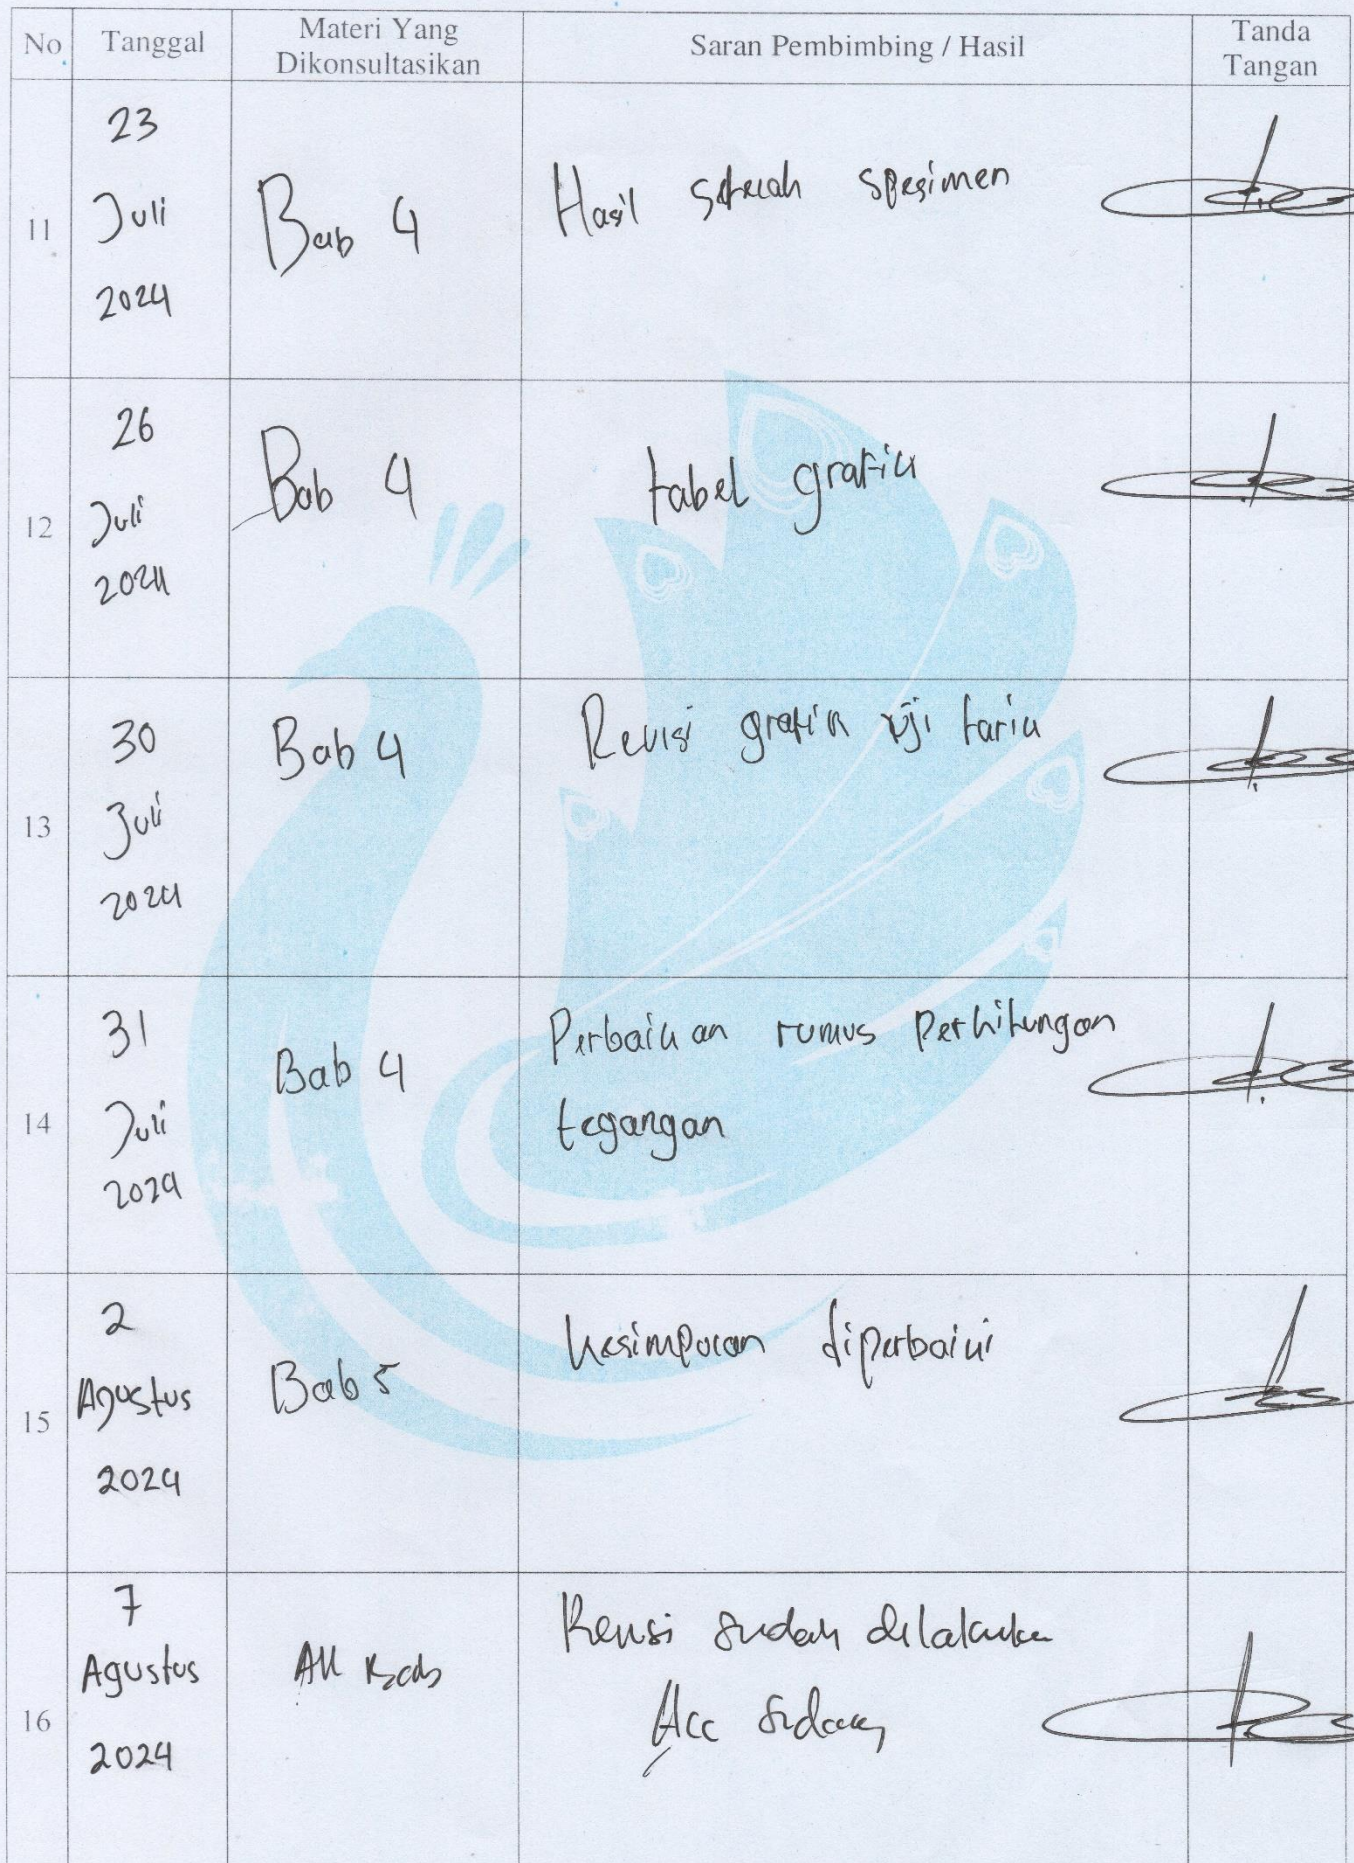 No Tanggal Materi Yang Dikonsultasikan Saran Pembimbing / Hasil Tanda Tangan
11 23 Juli 2024 Bab 4 Hasil setelah spesimen
12 26 Juli 2024 Bab 4 tabel grafik
13 30 Juli 2024 Bab 4 Revisi grafik uji tarik
14 31 Juli 2024 Bab 4 Perbaikan rumus Perhitungan
tegangan
15 2 Agustus 2024 Bab 5 kesimpulan diperbaiki
16 7 Agustus 2024 All Bab Revisi sudah dilakukan
Acc Sidang